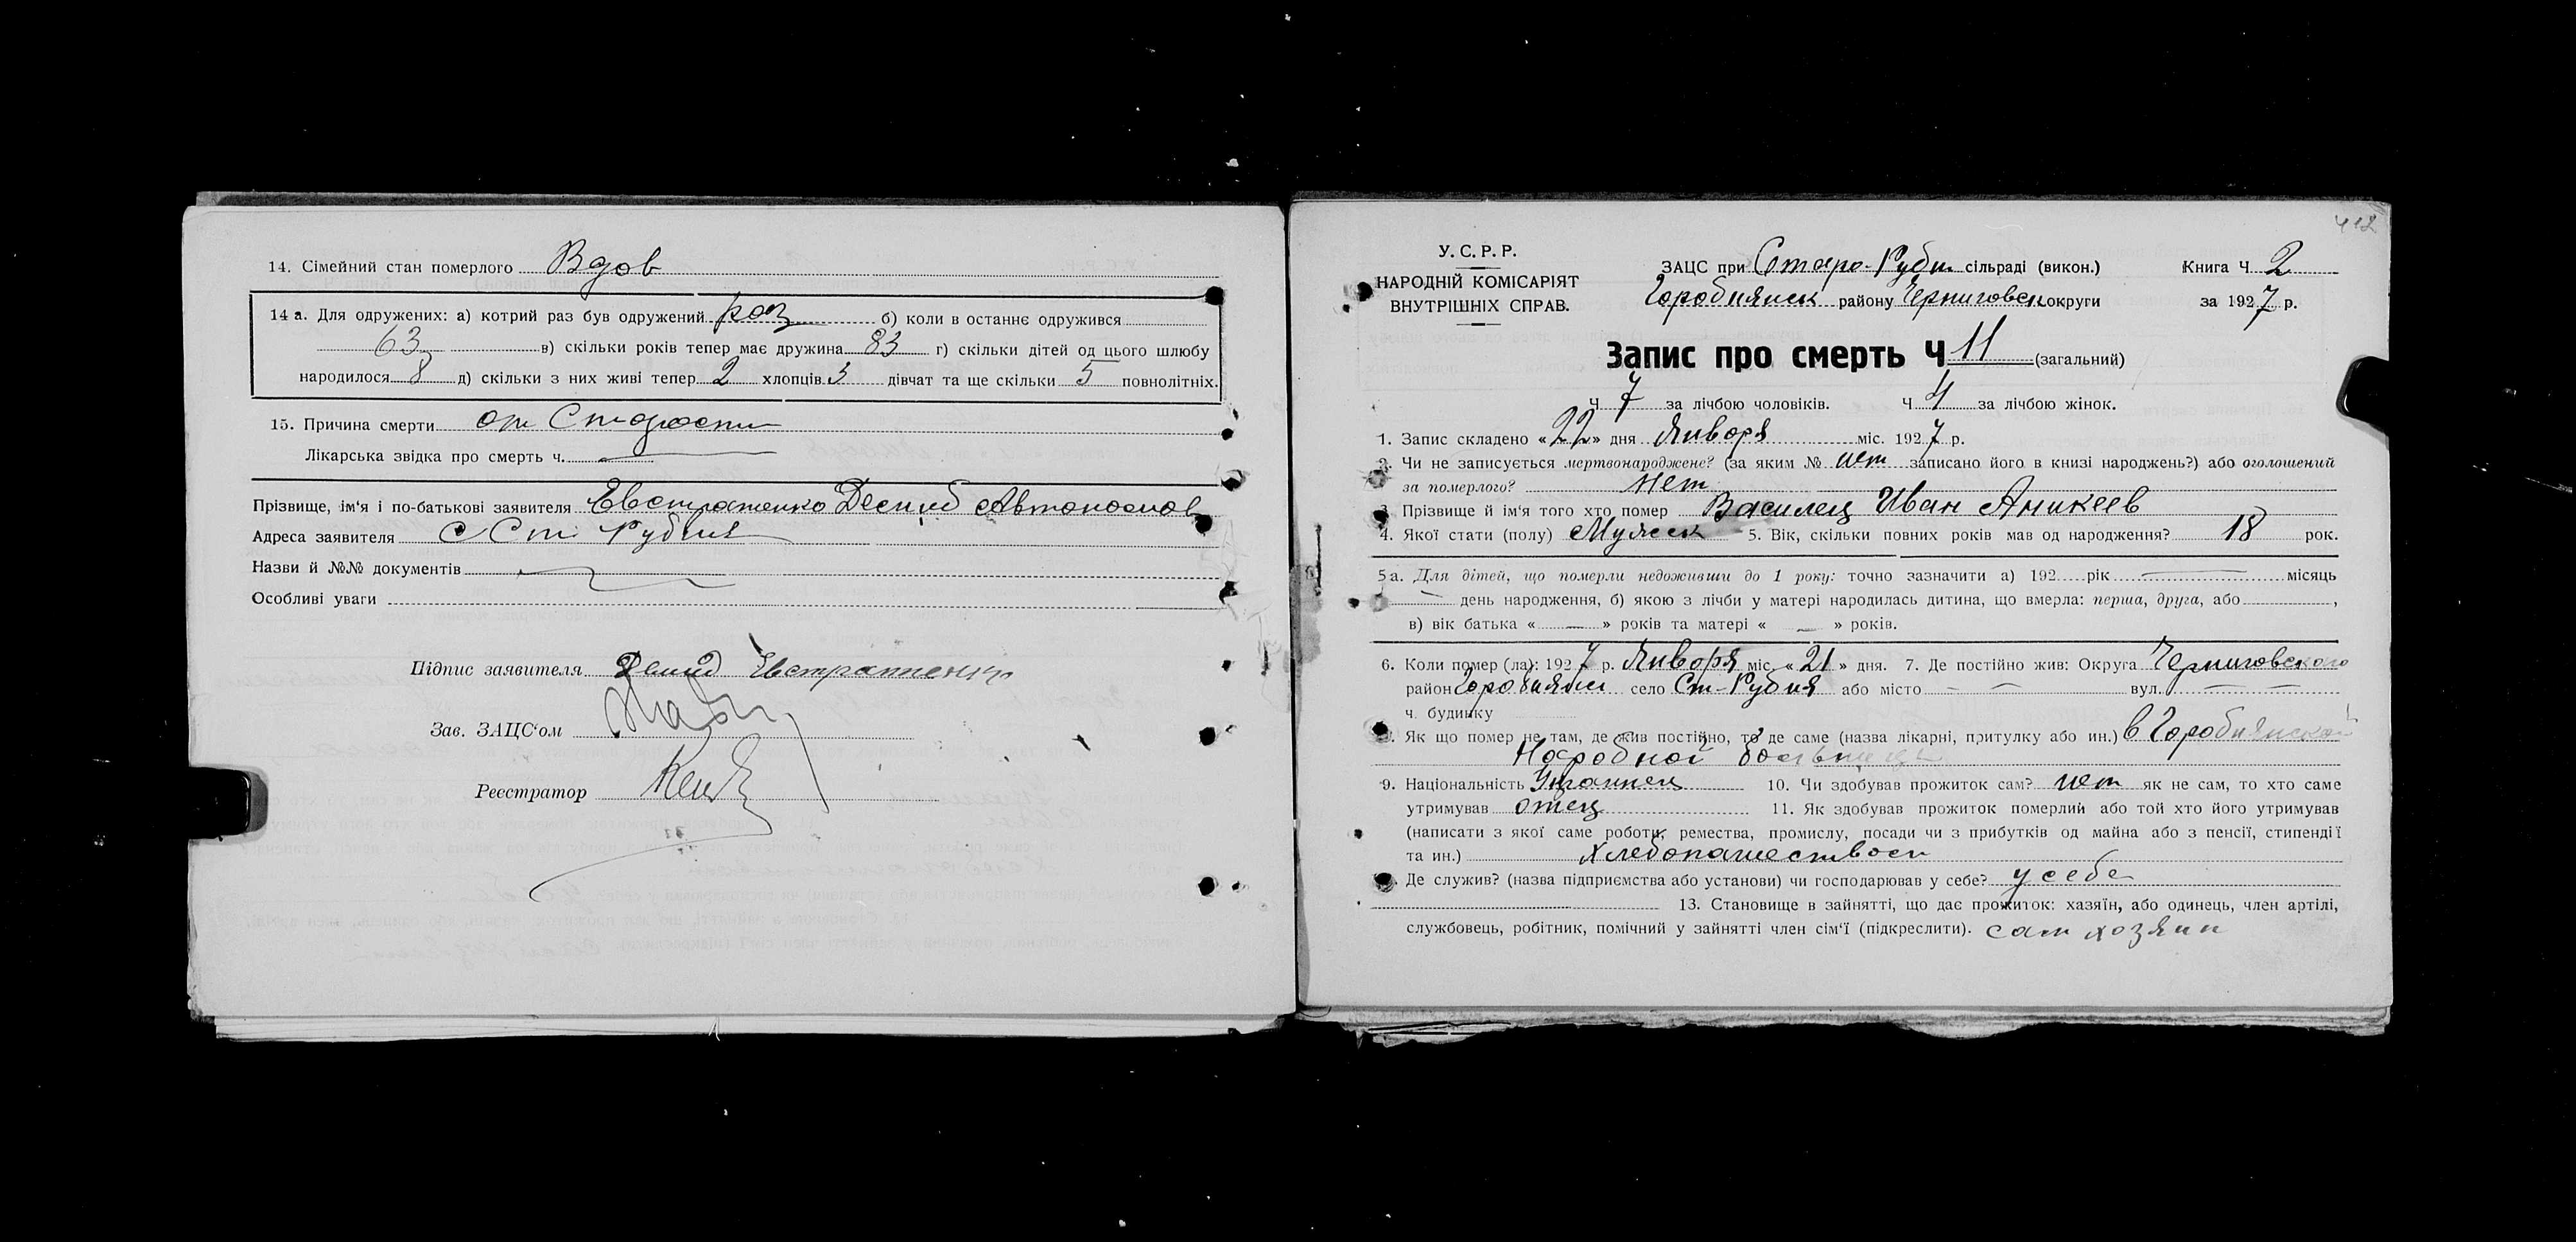 14. Сімейний стан померлого Вдов
14 а. Для одружених: а) котрий раз був одружений раз б) коли в останнє одружився
63 в) скільки років тепер має дружина 83 г) скільки дітей од цього шлюбу
народилося 8 д) скільки з них живі тепер 2 хлопців 3 дівчат та ще скільки 5 повнолітніх.
15. Причина смерти от Старости
Лікарська звідка про смерть ч.
Прізвище, ім'я і по-батькові заявителя Евстратенко Демид Автономов
Адреса заявителя с Ст Рудня
Назви й №№ документів
Особливі уваги
Підпис заявителя Демид Евстратенко
Зав. ЗАЦС'ом
Реєстратор
412
У. С. Р. Р.
НАРОДНІЙ КОМІСАРІЯТ
ВНУТРІШНІХ СПРАВ.
ЗАЦС при Старо-Рудн сільраді (викон.) Книга Ч 2
Городнянск району Черниговск округи за 1927 р.
Запис про смерть Ч 11 (загальний)
Ч 7 за лічбою чоловіків. Ч 4 за лічбою жінок.
1. Запис складено «22» дня Января міс. 1927 р.
2. Чи не записується мертвонароджене? (за яким № нет записано його в книзі народжень?) або оголошений
за померлого? нет
3. Прізвище й ім'я того хто помер Василец Иван Аникеев
4. Якої стати (полу) Мужск 5. Вік, скільки повних років мав од народження? 18 рок.
5 а. Для дітей, що померли недоживши до 1 року: точно зазначити а) 192 рік місяць
день народження, б) якою з лічби у матері народилась дитина, що вмерла: перша, друга, або ,
в) вік батька « — » років та матері « — » років.
6. Коли помер (ла): 1927 р. Января міс. «21» дня. 7. Де постійно жив: Округа Черниговского
район Городнянск село Ст-Рудня або місто — — вул. — —
ч. будинку
8. Як що помер не там, де жив постійно, то де саме (назва лікарні, притулку або ин.) в Городнянской
Народной больнице
9. Національність Украинец 10. Чи здобував прожиток сам? нет як не сам, то хто саме
утримував отец 11. Як здобував прожиток померлий або той хто його утримував
(написати з якої саме роботи, ремества, промислу, посади чи з прибутків од майна або з пенсії, стипендії
та ин.) хлебопашеством
Де служив? (назва підприємства або установи) чи господарював у себе? у себе
13. Становище в зайнятті, що дає прожиток: хазяїн, або одинець, член артілі,
службовець, робітник, помічний у зайнятті член сім'ї (підкреслити). сам хозяин